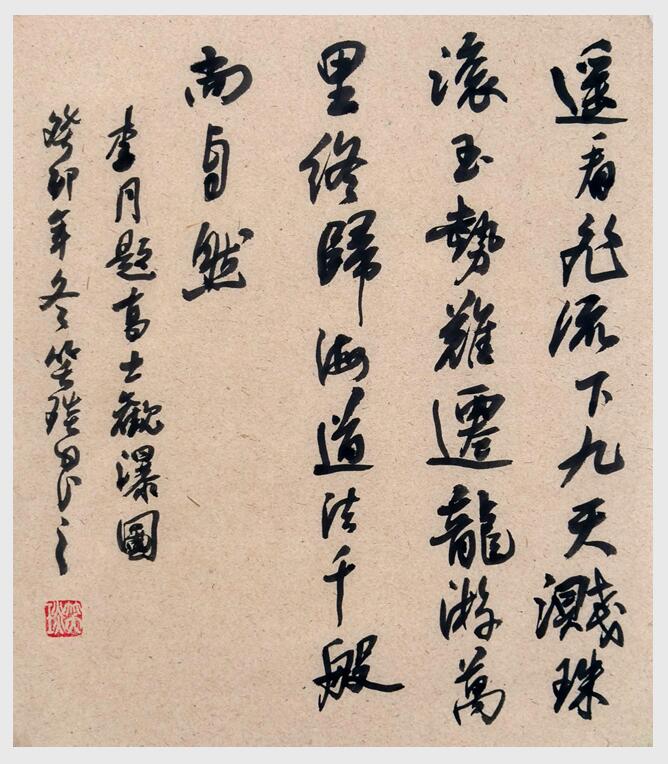 遥看飛流下九天濺珠
滚玉勢難遷龍游萬
里終歸海道法千般
尚自然
李月題高士觀瀑圖
癸卯年冬笑書之